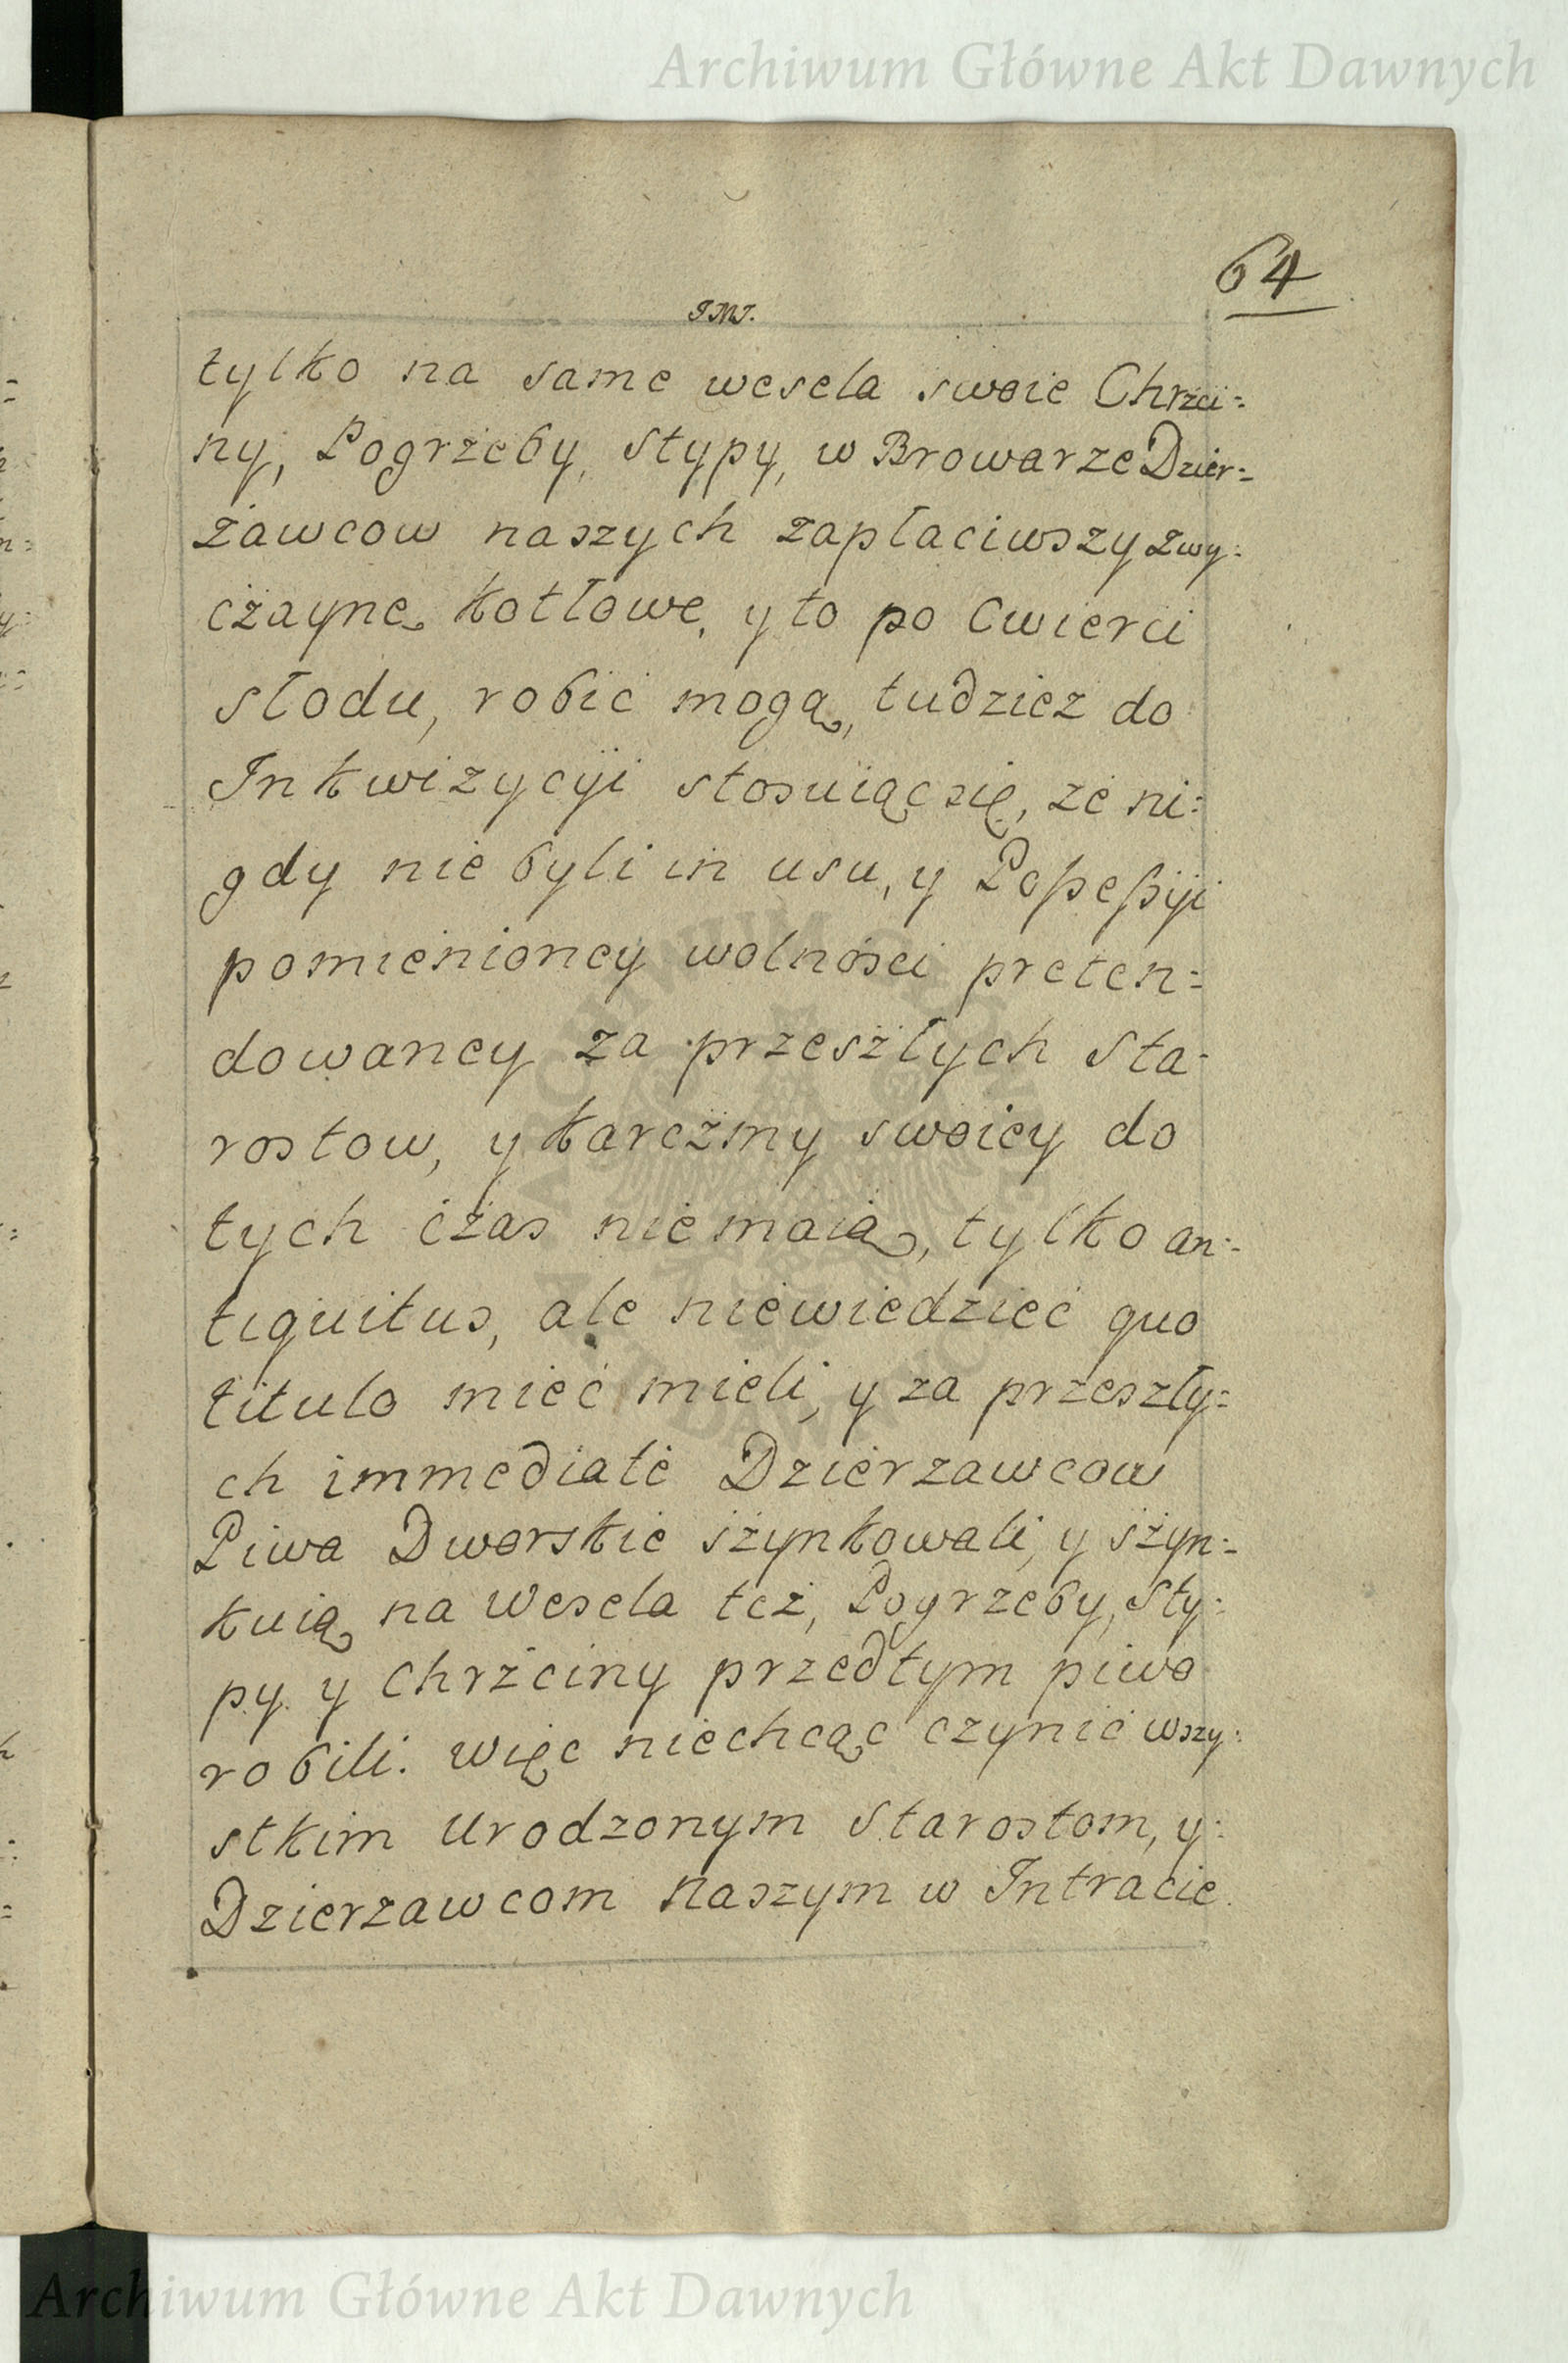 Archiwum Główne Akt Dawnych
64
JMJ.
tylko na same wesela swoie Chrzci=
ny, Pogrzeby, Stypy, w Browarze Dzier=
żawcow naszych zapłaciwszy zwy=
czayne kotłowe, y to po Cwierci
słodu, robić mogą, tudziez do
Inkwizycyi stosuiąc się, że ni=
gdy nie byli in usu, y Possessyi
pomienioney wolności preten=
dowaney za przeszłych Sta=
rostow, y karczmy swoiey do
tych czas nie maią, tylko an=
tiquitus, ale niewiedzieć quo
titulo mieć mieli, y za przeszły=
ch immediate Dzierzawcow
Piwa Dworskie szynkowali, y szyn=
kuią na Wesela też, Pogrzeby, Sty=
py y Chrzciny przedtym piwo
robili. Więc niechcąc czynić wszy=
stkim Urodzonym Starostom, y=
Dzierzawcom Naszym w Intracie
Archiwum Główne Akt Dawnych